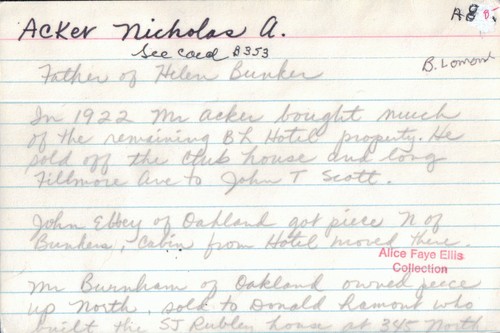 A8
Acker Nicholas A.
See card B353
B. Lomond
Father of Helen Bunker
In 1922 Mr Acker bought much
of the remaining BL Hotel property. He
sold off the club house and long
Fillmore Ave to John T Scott.
John Ebbey of Oakland got piece N of
Bunkers, cabin from Hotel moved there.
Alice Faye Ellis
Collection
Mr Burnham of Oakland owned piece
up North, sold to Donald Lamont who
built the SJ Rubley house at 395 North